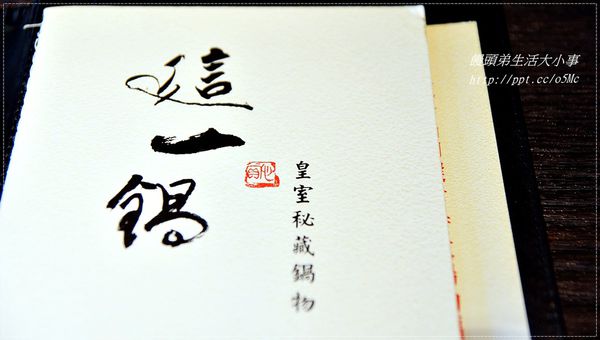 這一鍋
皇室秘藏鍋物
饅頭弟生活大小事
http://ppt.cc/o5Mc